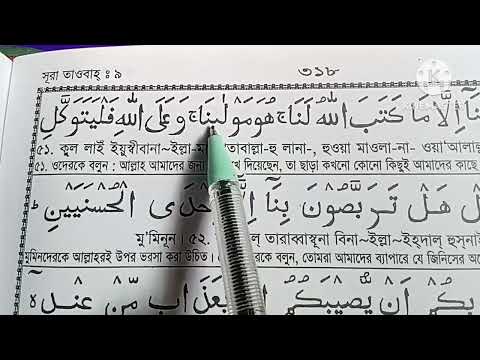 সূরা তাওবাহ্ : ৯
৩১৮
نَآ اِلَّا مَا كَتَبَ اللّٰهُ لَنَا ۚ هُوَ مَوْلٰىنَا ۚ وَعَلَى اللّٰهِ فَلْيَتَوَكَّلِ
৫১. কুল লাই ইয়ুস্বীবানা~ইল্লা-মা তাবাল্লা-হু লানা-, হুওয়া মাওলা-না- ওয়া'আলাল্লা
৫১. ওদেরকে বলুন : আল্লাহ আমাদের জন্য দিয়েছেন, তা ছাড়া কখনো কোনো কিছুই আমাদের কাছে
هَلْ تَرَبَّصُوْنَ بِنَآ اِلَّآ اِحْدَى الْحُسْنَيَيْنِ ؕ
মু'মিনূন। ৫২. ল্ তারাব্বাস্বূনা বিনা~ইল্লা~ইহ্দাল্ হুস্নাই
মুমিনদেরকে আল্লাহরই উপর ভরসা করা উচিত। কে বলুন, তোমরা আমাদের ব্যাপারে যে জিনিসের
بِكُمْ اَنْ يُّصِيْبَكُمُ بِعَذَابٍ مِّنْ عِنْدِهٖٓ